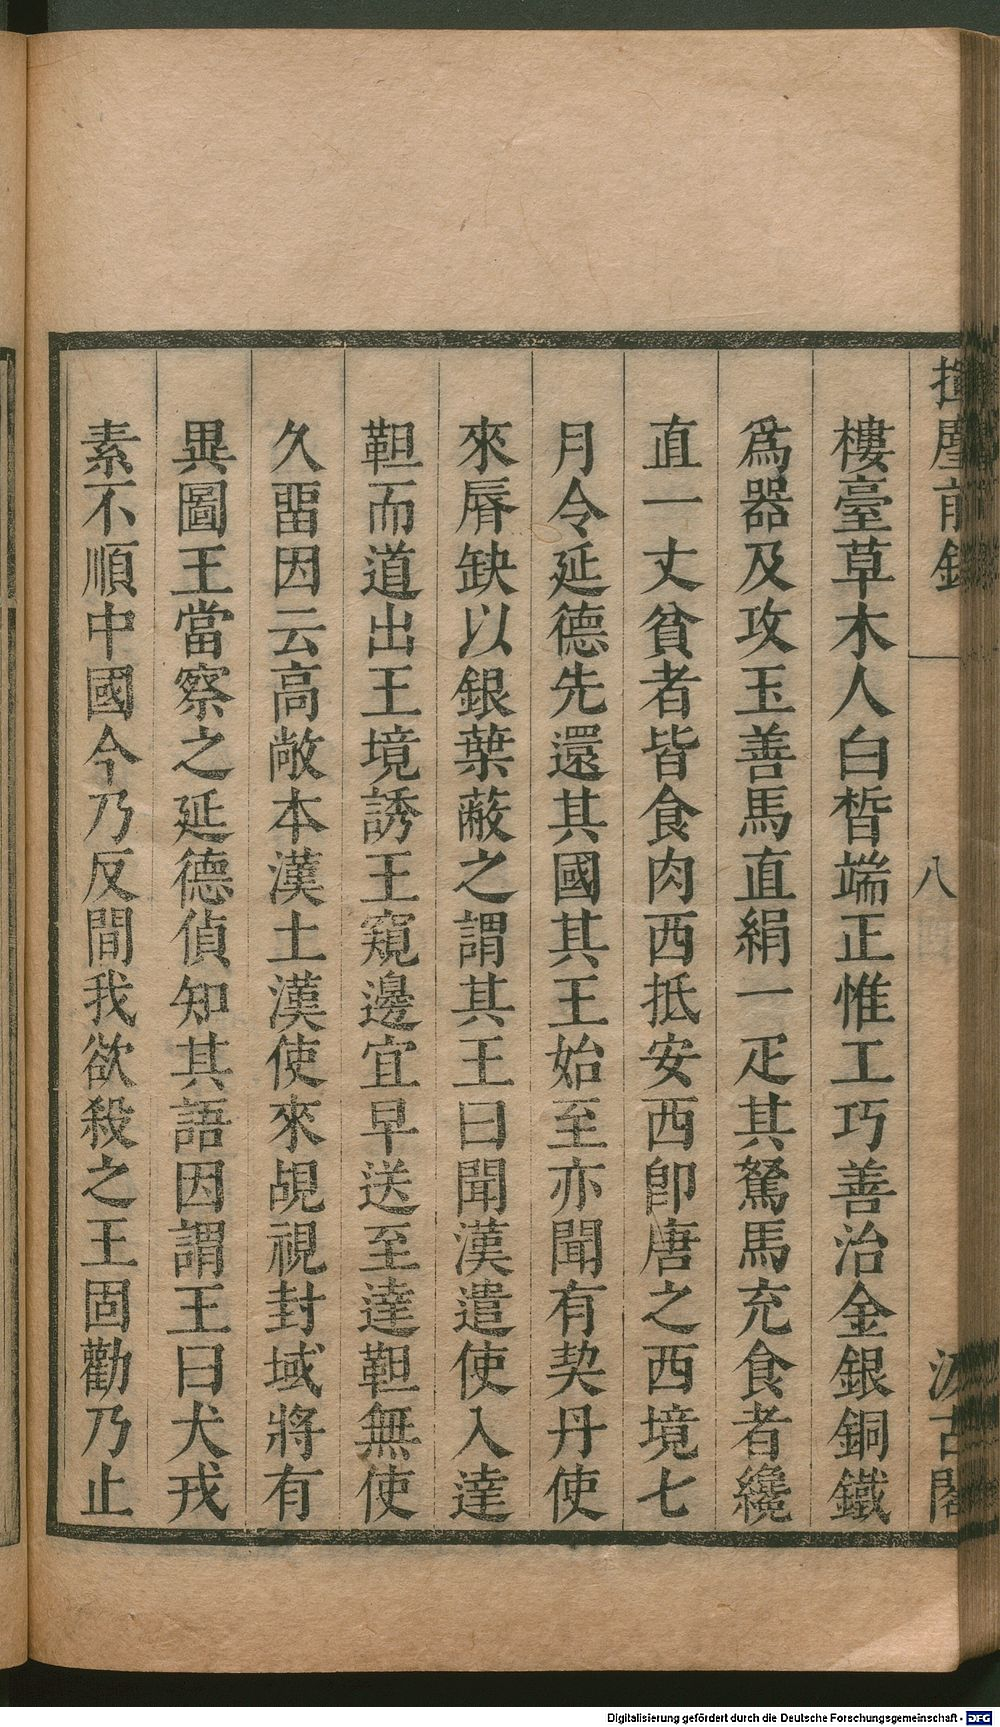 揮麈前錄
八
汲古閣
樓臺草木人白晳端正惟工巧善治金銀銅鐵
爲器及攻玉善馬直絹一疋其駑馬充食者纔
直一丈貧者皆食肉西抵安西卽唐之西境七
月令延德先還其國其王始至亦聞有契丹使
來脣缺以銀葉蔽之謂其王曰聞漢遣使入達
靼而道出王境誘王窺邊宜早送至達靼無使
久畱因云高敞本漢土漢使來覘視封域將有
異圖王當察之延德偵知其語因謂王曰犬戎
素不順中國今乃反間我欲殺之王固勸乃止
Digitalisierung gefördert durch die Deutsche Forschungsgemeinschaft - DFG